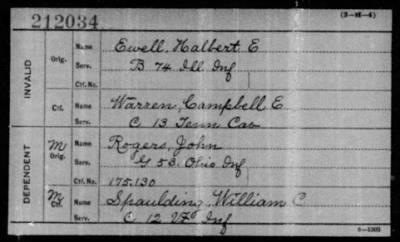 212034
(3-xi-4)
INVALID
Orig.
Name Ewell, Halbert E
Serv. B 74 Ill Inf
Ctf. No.
Ctf.
Name Warren, Campbell E
Serv. C 13 Tenn Cav
DEPENDENT
M Orig.
Name Rogers, John
Serv. G 53 Ohio Inf
Ctf. No. 175,130
M Ctf.
Name Spaulding, William C
Serv. C 12 Vt Inf